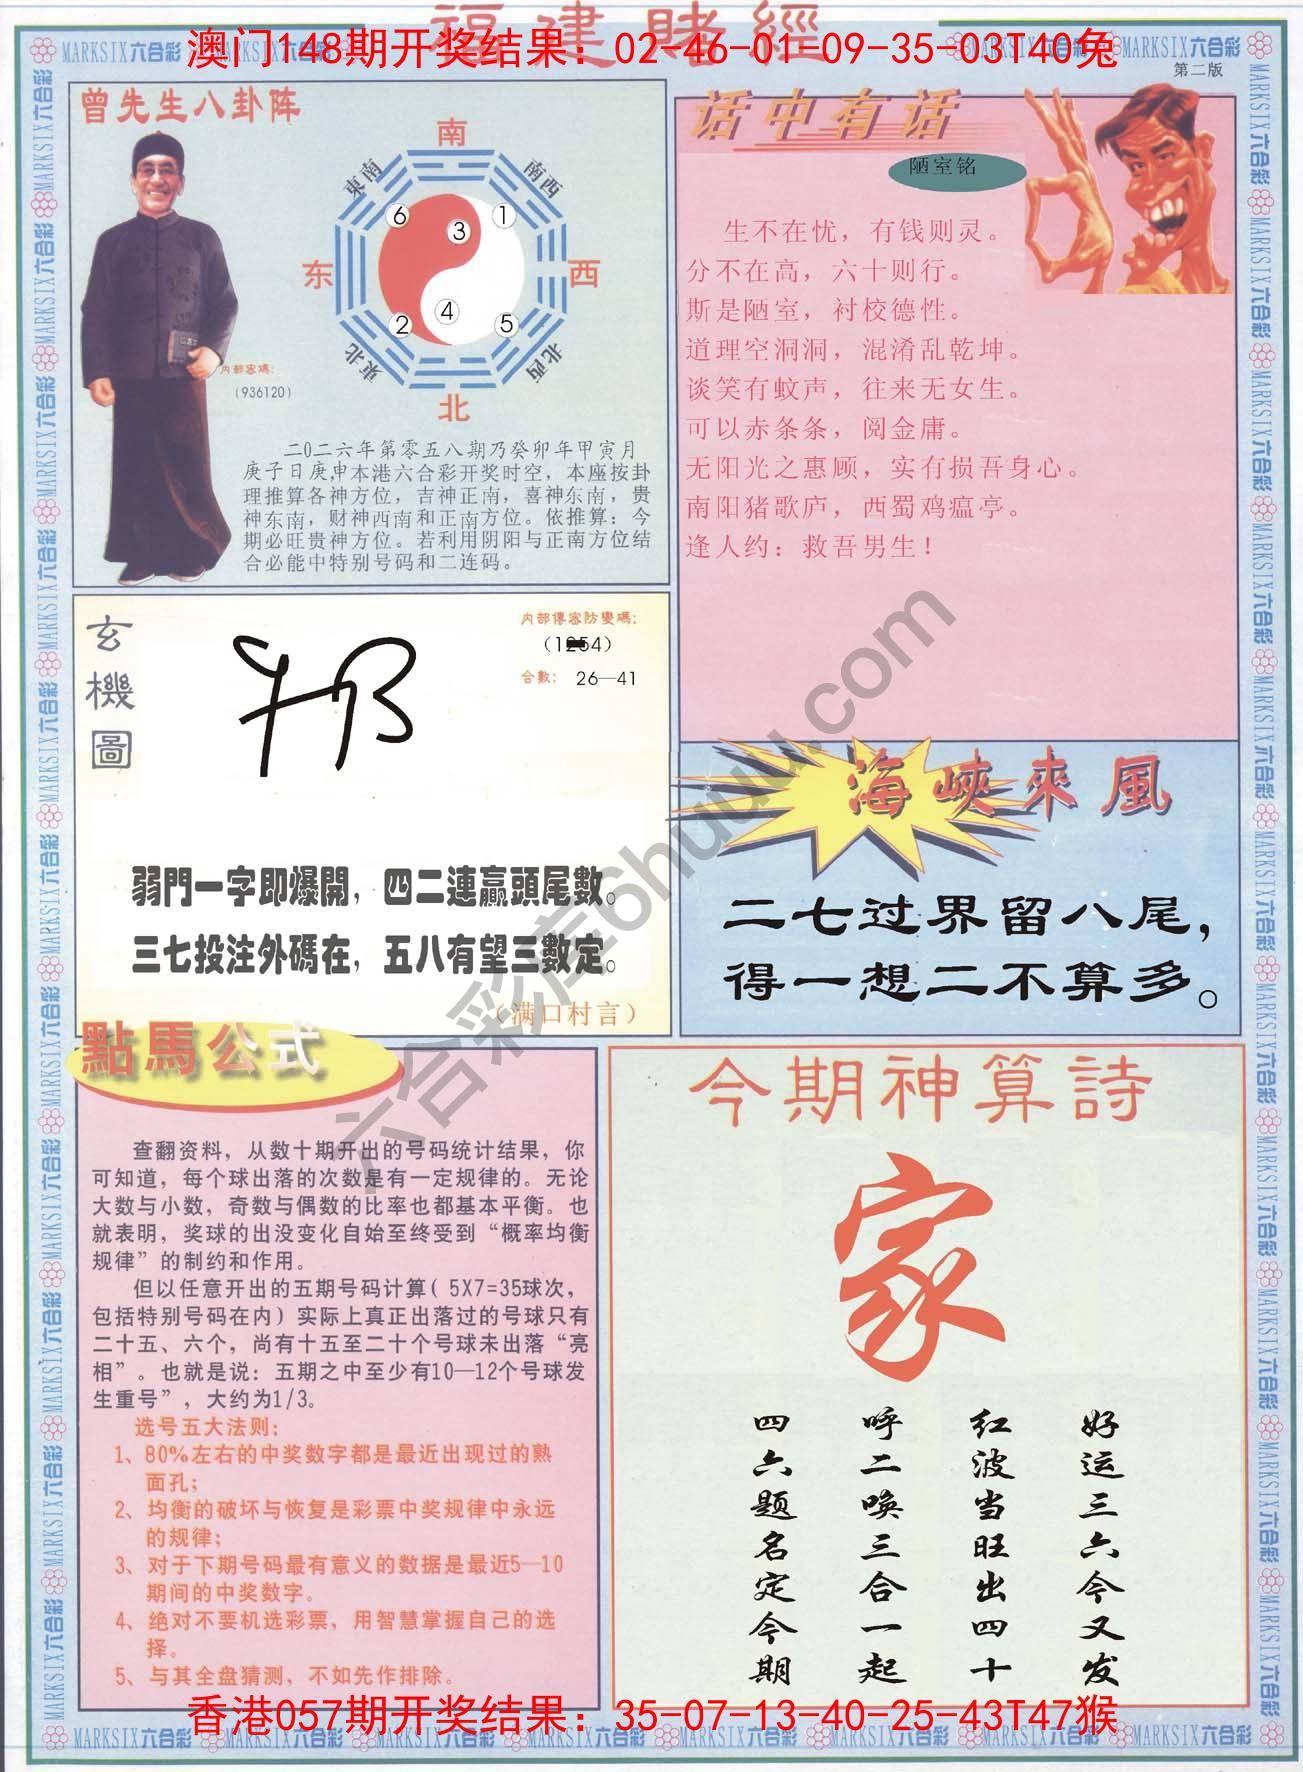 福建賭經
澳门148期开奖结果：02-46-01-09-35-03T40兔
MARKSIX六合彩
第二版
曾先生八卦阵
南
東南
南西
6
3
1
东
西
4
2
5
東北
北西
北
内部密碼：
(936120)
二0二六年第零五八期乃癸卯年甲寅月
庚子日庚申本港六合彩开奖时空，本座按卦
理推算各神方位，吉神正南，喜神东南，贵
神东南，财神西南和正南方位。依推算：今
期必旺贵神方位。若利用阴阳与正南方位结
合必能中特别号码和二连码。
话中有话
陋室铭
生不在忧，有钱则灵。
分不在高，六十则行。
斯是陋室，衬校德性。
道理空洞洞，混淆乱乾坤。
谈笑有蚊声，往来无女生。
可以赤条条，阅金庸。
无阳光之惠顾，实有损吾身心。
南阳猪歌庐，西蜀鸡瘟亭。
逢人约：救吾男生！
玄機圖
内部傳密防變碼：
合數： 26—41
弱門一字即爆開，四二連贏頭尾數。
三七投注外碼在，五八有望三數定。
（满口村言）
海峽來風
二七过界留八尾，
得一想二不算多。
點馬公式
查翻资料，从数十期开出的号码统计结果，你
可知道，每个球出落的次数是有一定规律的。无论
大数与小数，奇数与偶数的比率也都基本平衡。也
就表明，奖球的出没变化自始至终受到“概率均衡
规律”的制约和作用。
但以任意开出的五期号码计算( 5X7=35球次，
包括特别号码在内）实际上真正出落过的号球只有
二十五、六个，尚有十五至二十个号球未出落“亮
相”。也就是说：五期之中至少有10—12个号球发
生重号”，大约为1/3。
选号五大法则：
1、80%左右的中奖数字都是最近出现过的熟
面孔；
2、均衡的破坏与恢复是彩票中奖规律中永远
的规律；
3、对于下期号码最有意义的数据是最近5—10
期间的中奖数字。
4、绝对不要机选彩票，用智慧掌握自己的选
择。
5、与其全盘猜测，不如先作排除。
今期神算詩
家
好运三六今又发
红波当旺出四十
呼二唤三合一起
四六题名定今期
六合彩库6huuu.com
香港057期开奖结果：35-07-13-40-25-43T47猴
MARKSIX六合彩